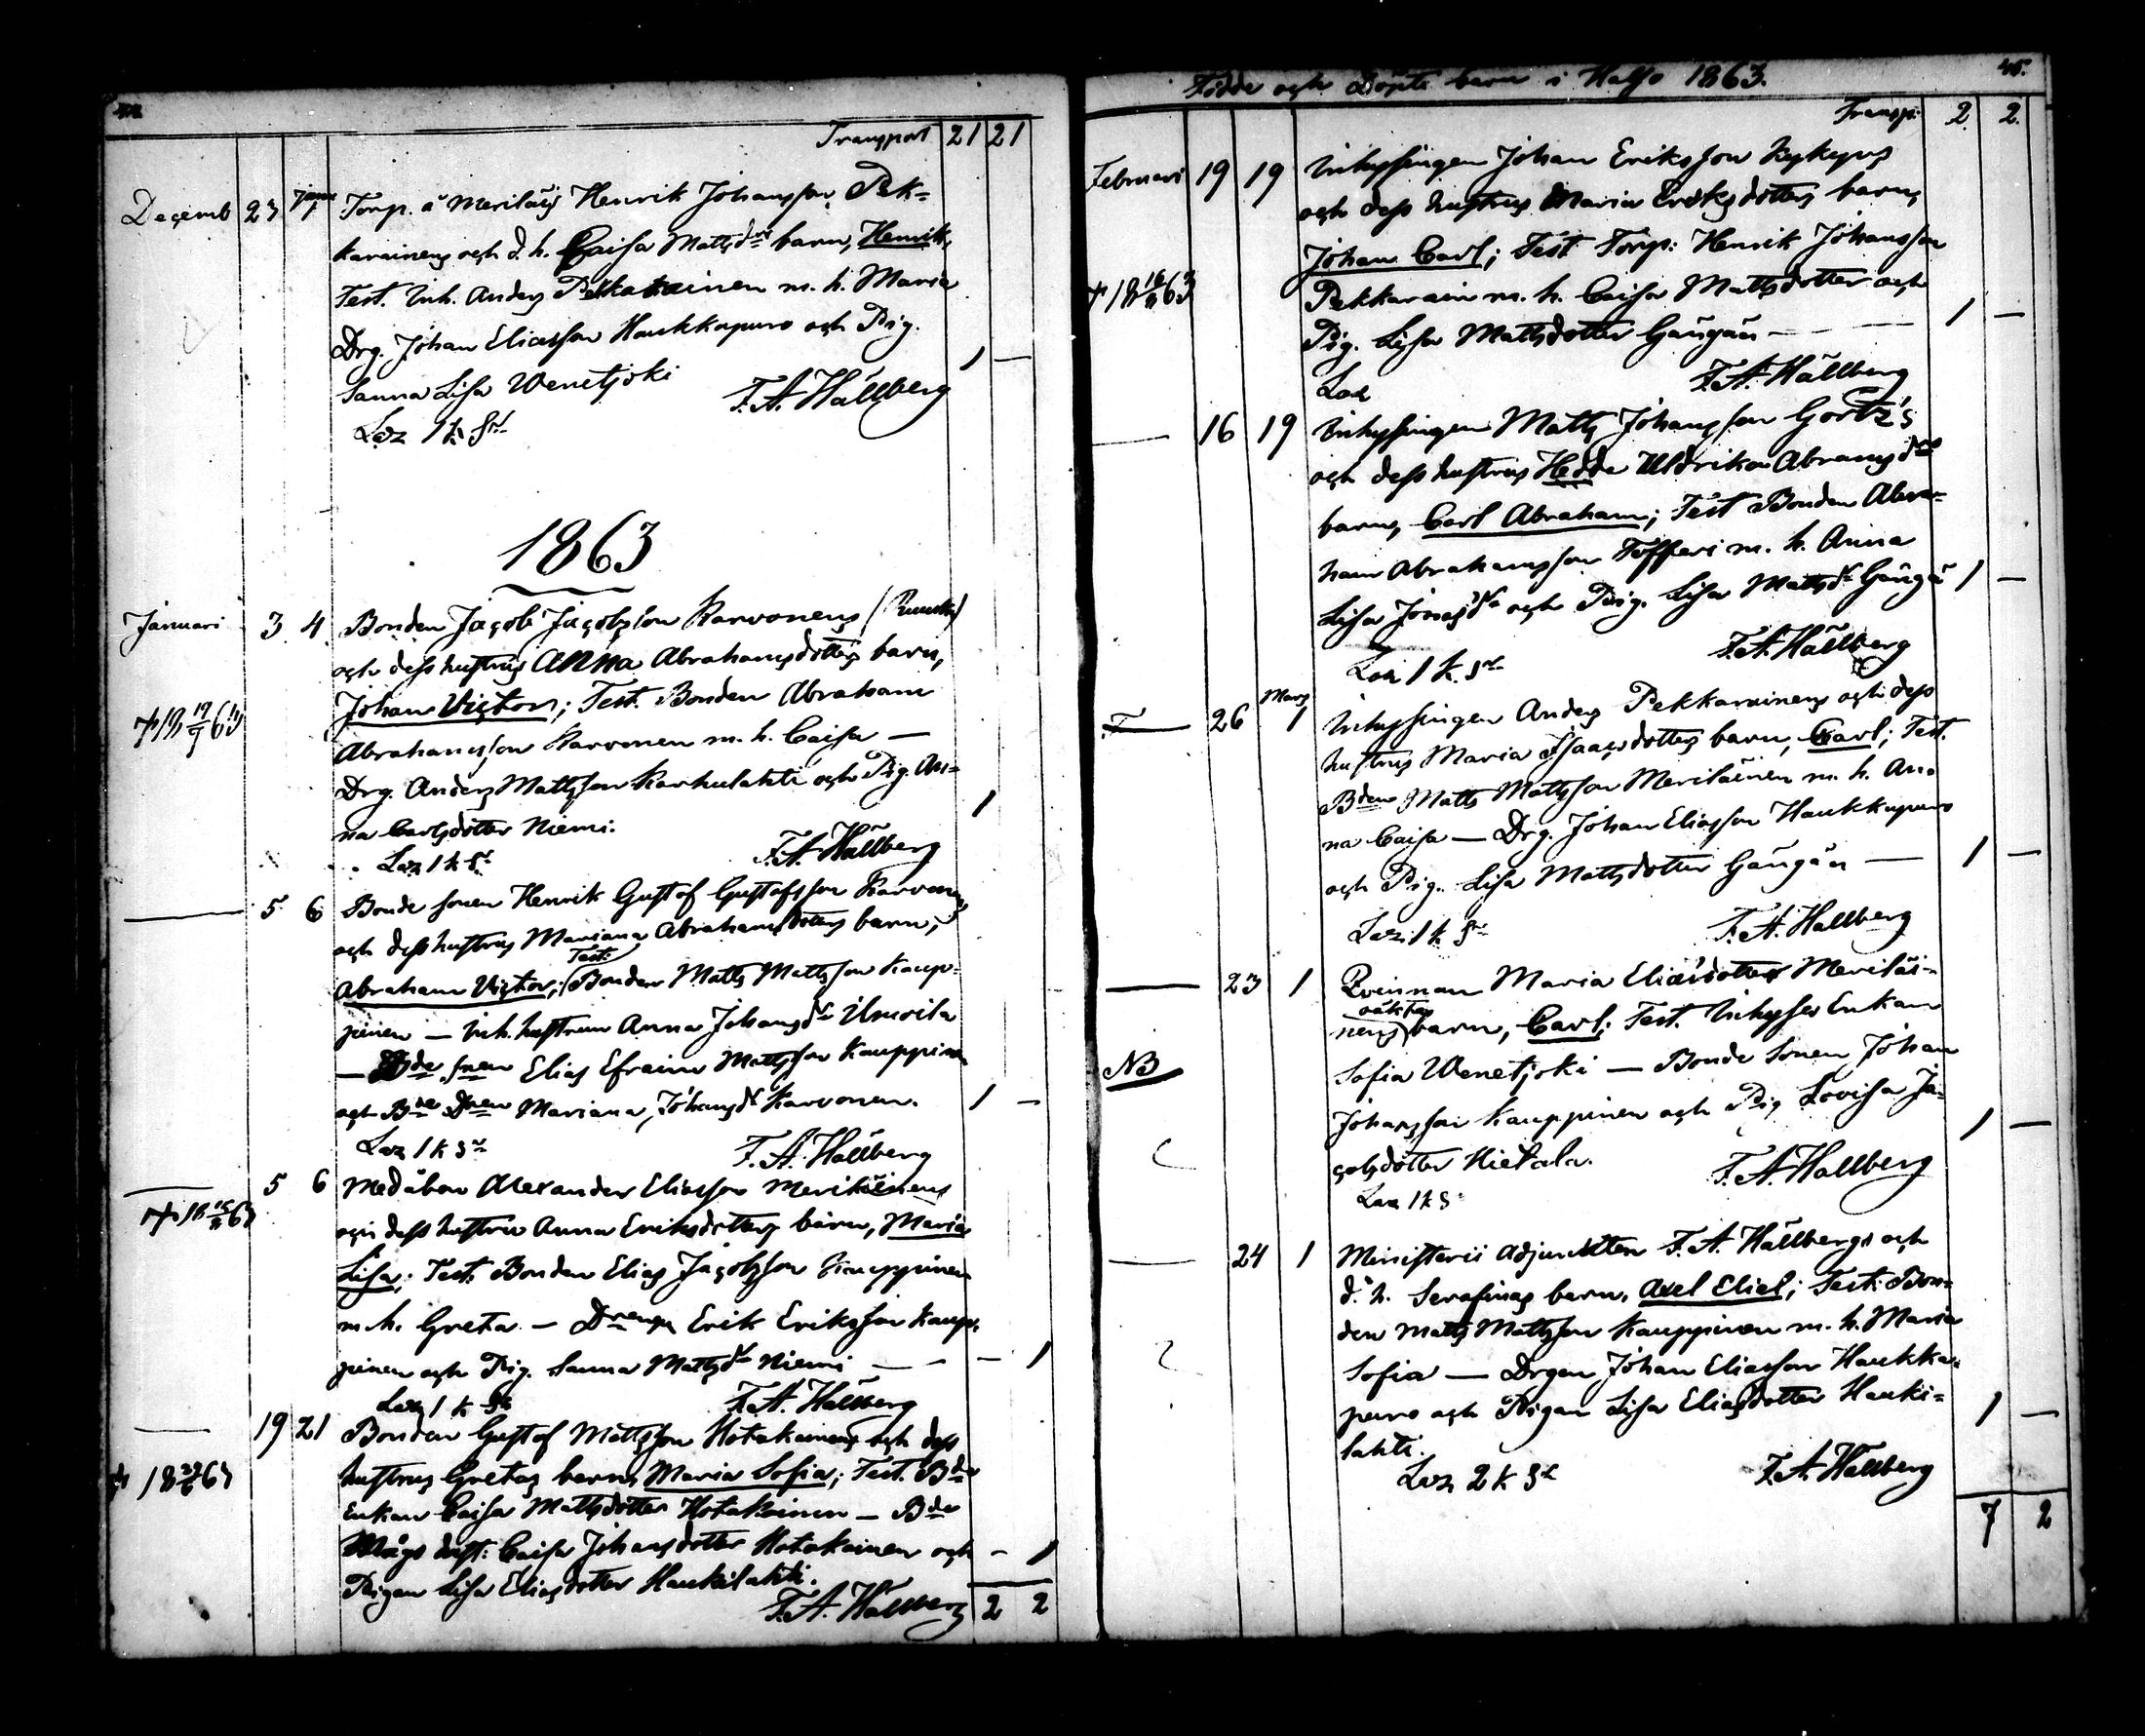 44.
Transport 21 21
Decemb 23 Janu 1 Torp. å Meriläis Henrik Johansson Pek-
karainens och d. h. Caisa Matts dr barn, Henrik,
Test. Inh. Anders Pekkarainen m. h. Maria
Drg. Johan Eliasson Haukkapuro och Pig.
Sanna Lisa Wenetjoki 1 —
F. A. Hällberg
Loz 1 k Sr
1863
Januari 3 4 Bonden Jacob Jacobsson Karvonens
och dess hustrus Anna Abrahamsdotters barn,
Johan Victor; Test. Bonden Abraham
Abrahamsson Karvonen m. h. Caisa —
Drg. Anders Mattsson Karhulahti och Pig. An-
na Carlsdotter Niemi. 1
F. A. Hällberg
— 5 6 Bonde sonen Henrik Gustof Gustofsson Karvonens
och dess hustrus Mariana Abrahamsdotters barn,
Abraham Victor; (Test: Bonden Matts Mattsson Kaup-
pinen — Inh. hustrun Anna Johansdr
— Bde snen Elias Efraim Mattsson Kauppinen
och Bde Dren Mariana Johansdr Karvonen. 1 —
F. A. Hällberg
— 5 6 Medåbon Alexander Eliasson Meriläinens
och dess hustru Anna Eriksdotters barn, Maria
Lisa; Test. Bonden Elias Jacobsson Kauppinen
m. h. Greta — Drengen Erik Eriksson Kaup-
pinen och Pig. Sanna Mattsdr Niemi — — — 1
F. A. Hällberg
— 19 21 Bonden Gustof Mattsson Hotakainens och dess
hustrus Gretas barn, Maria Sofia; Test. Bde
Enkan Caisa Mattsdotter Hotakainen — Bde
Mågs hust: Caisa Johansdotter Hotakainen och — 1
Pigan Lisa Eliasdotter Haukilahti.
F. A. Hällberg 2 2
Födde och Döpte barn i Halso 1863. 45.
Transp: 2. 2.
Februari 19 19 Inhysingen Johan Eriksson Kykyris
och dess hustrus Maria Eriksdotters barn,
Johan Carl; Test Torp: Henrik Johansson
Pekkarain m. h. Caisa Mattsdotter och
Pig. Lisa Mattsdotter Gängän — — — 1 —
F. A. Hällberg
— 16 19 Inhysingen Matts Johansson Görtz's
och dess hustrus Hedda Uldrika Abramsdrs
barn, Carl Abraham; Test Bonden Abra-
ham Abrahamsson Tofferi m. h. Anna
Lisa Jonasdr och Pig. Lisa Mattsdr Gängä 1 —
F. A. Hällberg
— 26 Mars 1 Inhysingen Anders Pekkarainens och dess
hustrus Maria Isaacsdotters barn, Carl; Test.
Bden Matts Mattsson Meriläinen m. h. An-
na Caisa — Drg. Johan Eliasson Haukkapuro
och Pig. Lisa Mattsdotter Gängän — 1 —
F. A. Hällberg
— 23 1 Qvinnan Maria Eliasdotters Meriläi-
nens oäkta barn, Carl; Test. Inhyses Enkan
NB Sofia Wenetjoki — Bonde Sonen Johan
Johansson Kauppinen och Pig Lovisa Ja-
cobsdotter Hietala. 1 —
F. A. Hällberg
— 24 1 Ministerii Adjunkten F. A. Hällbergs och
d. h. Serafinas barn, Axel Eliel; Test: Bon-
den Matts Mattsson Kauppinen m. h. Maria
Sofia — Drgen Johan Eliasson Haukka-
puro och Pigan Lisa Eliasdotter Hauki- 1 —
lahti.
F. A. Hällberg
7 2